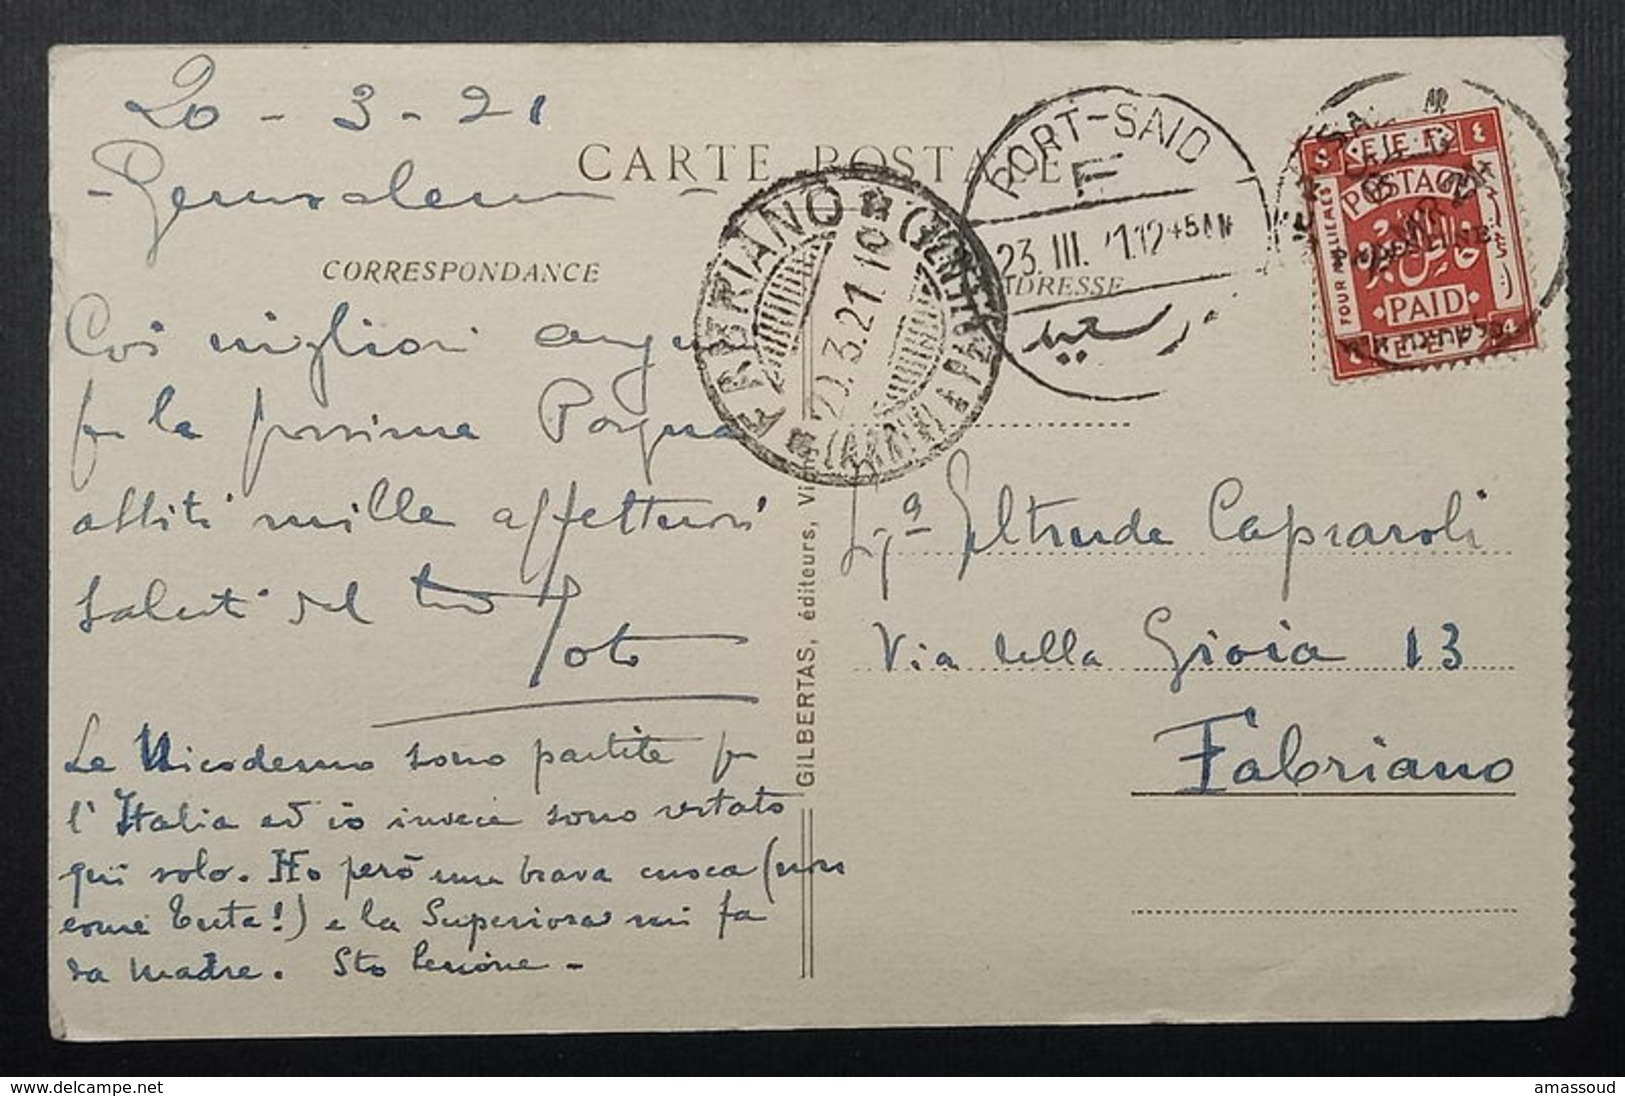 20-3-21
Jerusalem
CARTE POSTALE
CORRESPONDANCE
ADRESSE
Coi migliori auguri
per la prossima Pasqua
abbiti mille affettuosi
saluti dal tuo
Toto
Le Nicodemo sono partite per
l'Italia ed io invece sono restato
qui solo. Ho però una brava cuoca (non
come Tuta!) e la Superiora mi fa
da madre. Sto benone -
GILBERTAS, éditeurs,
FABRIANO
3.21.10
PORT-SAID
F
23.III.21.12 45 AM
E.E.F.
POSTAGE
FOUR MILLIEMES
خالص
PAID
E.E.F.
4
٤
Geltrude Capraroli
Via della Gioia 13
Fabriano
delcampe.net
amassoud